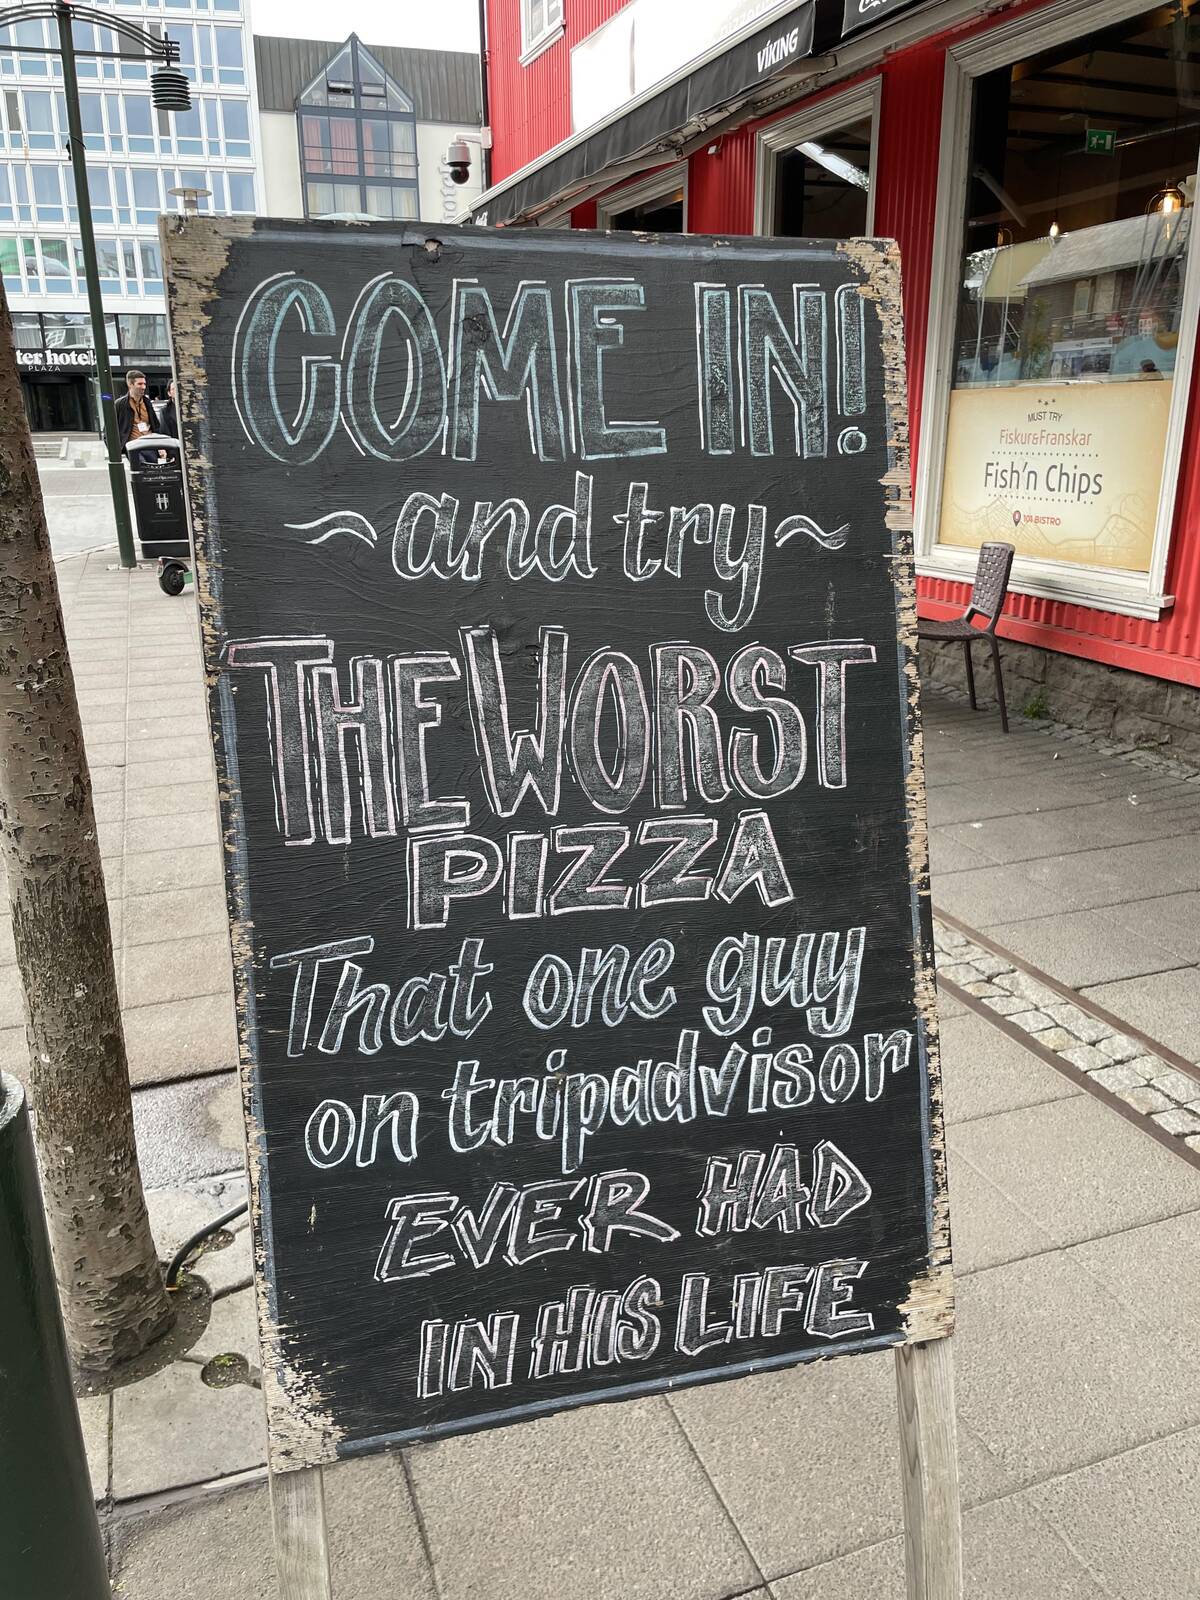 COME IN!
~and try~
THE WORST
PIZZA
That one guy
on tripadvisor
EVER HAD
IN HIS LIFE
VÍKING
ter hotel
PLAZA
MUST TRY
Fiskur&Franskar
Fish'n Chips
101 BISTRO